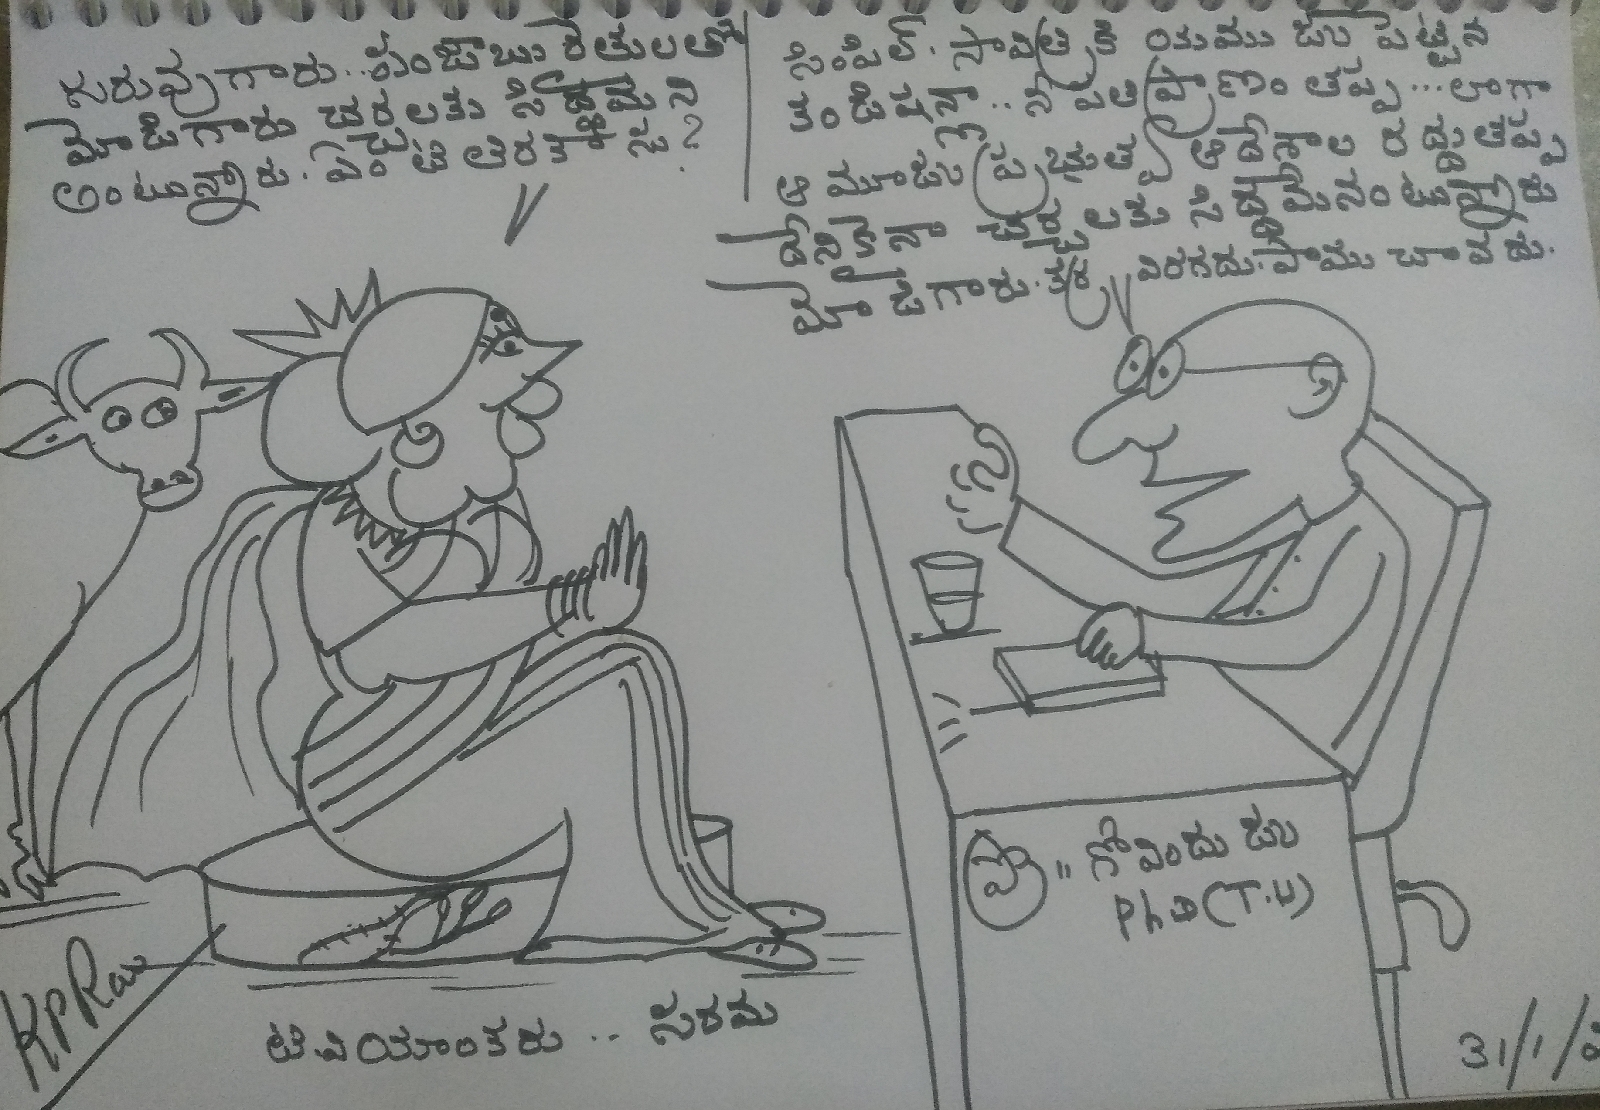 గురువుగారు.. పంజాబు రైతులతో
మోడిగారు చర్చలకు సిద్ధమని
అంటున్నారు. ఏంటి ఆంతర్యం?
సింపిల్. సావిత్రికి యముడు పెట్టిన
కండిషన్.. నీ పతి ప్రాణం తప్ప... లాగా
ఆ మూడు ప్రభుత్వ ఆదేశాల రద్దు తప్ప
దేనికైనా చర్చలకు సిద్ధమేనంటున్నారు
మోడిగారు. కర్ర విరగదు. పాము చావదు.
ప్రొ" గోవిందుడు
PhD (T.U)
టి.వి యాంకరు .. సరమ
KPRao
31/1/